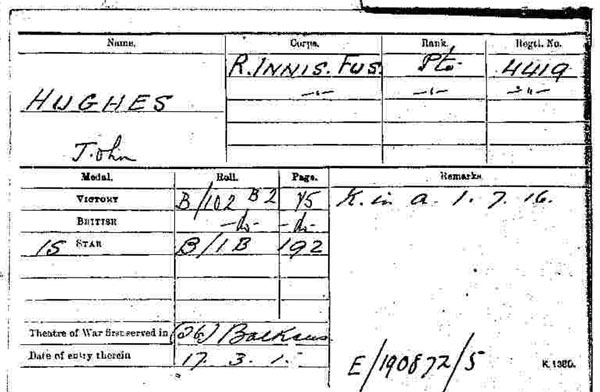 Name. Corps. Rank. Regtl. No.
HUGHES R. INNIS. FUS. Pte. 4419
John -"- -"- -"-
Medal. Roll. Page. Remarks.
VICTORY B/102 B2 75 K. in a. 1. 7. 16.
BRITISH -do- -do-
15 STAR B/1B 192
Theatre of War first served in (2b) Balkans
Date of entry therein 17. 3. 1
E/190872/5 K.1380.